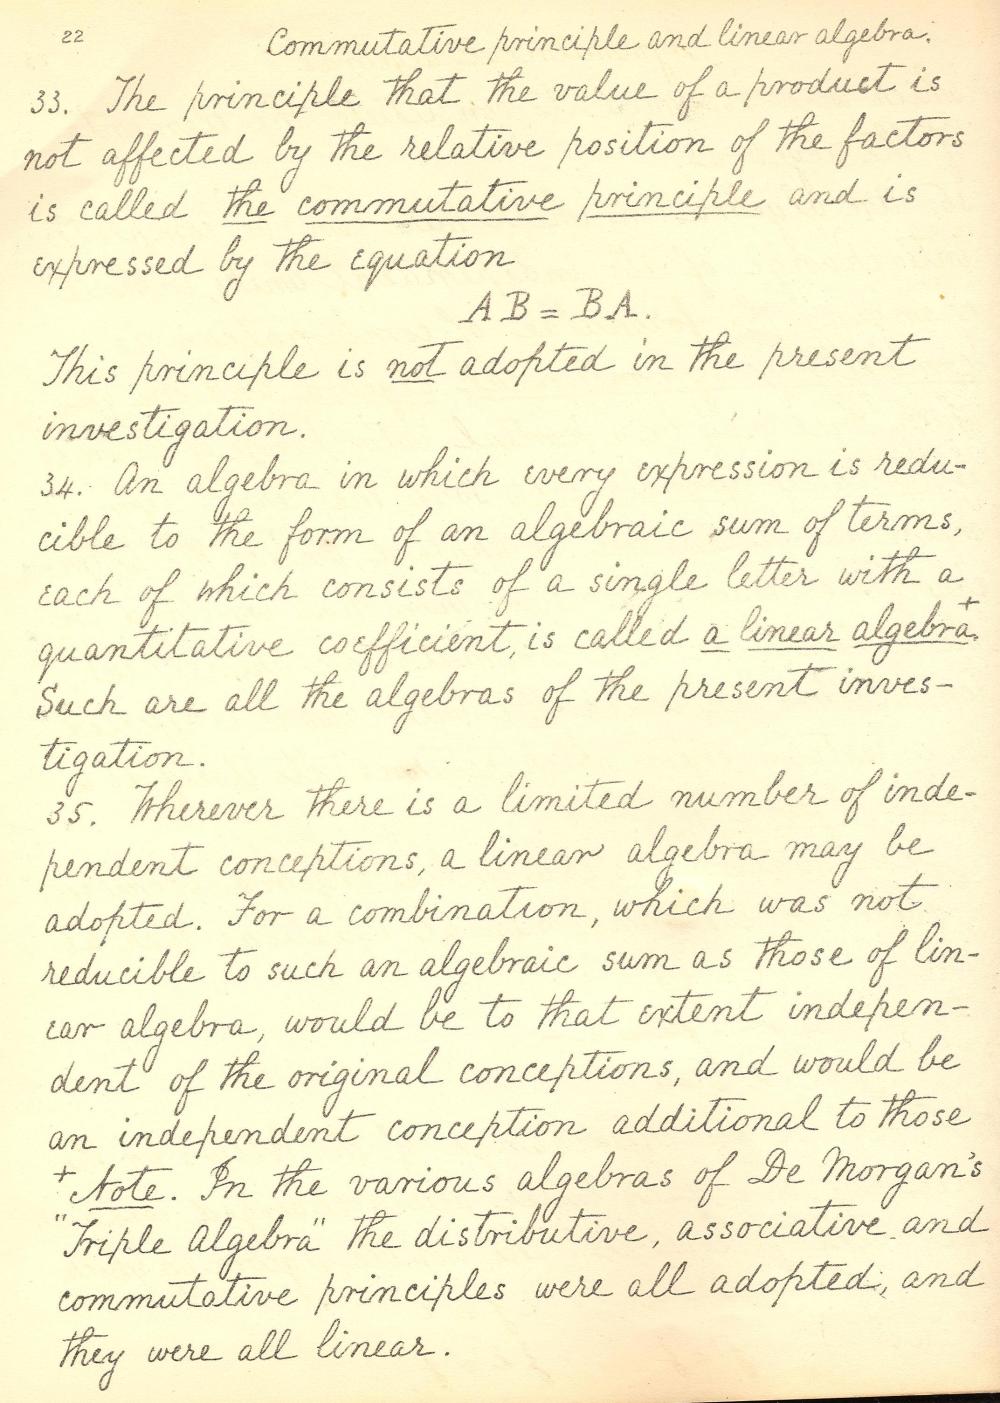 22
Commutative principle and linear algebra.
33. The principle that the value of a product is
not affected by the relative position of the factors
is called the commutative principle and is
expressed by the equation
AB = BA.
This principle is not adopted in the present
investigation.
34. An algebra in which every expression is redu-
cible to the form of an algebraic sum of terms,
each of which consists of a single letter with a
quantitative coefficient, is called a linear algebra.+
Such are all the algebras of the present inves-
tigation.
35. Wherever there is a limited number of inde-
pendent conceptions, a linear algebra may be
adopted. For a combination, which was not
reducible to such an algebraic sum as those of lin-
ear algebra, would be to that extent indepen-
dent of the original conceptions, and would be
an independent conception additional to those
+ Note. In the various algebras of De Morgan's
"Triple Algebra" the distributive, associative and
commutative principles were all adopted, and
they were all linear.